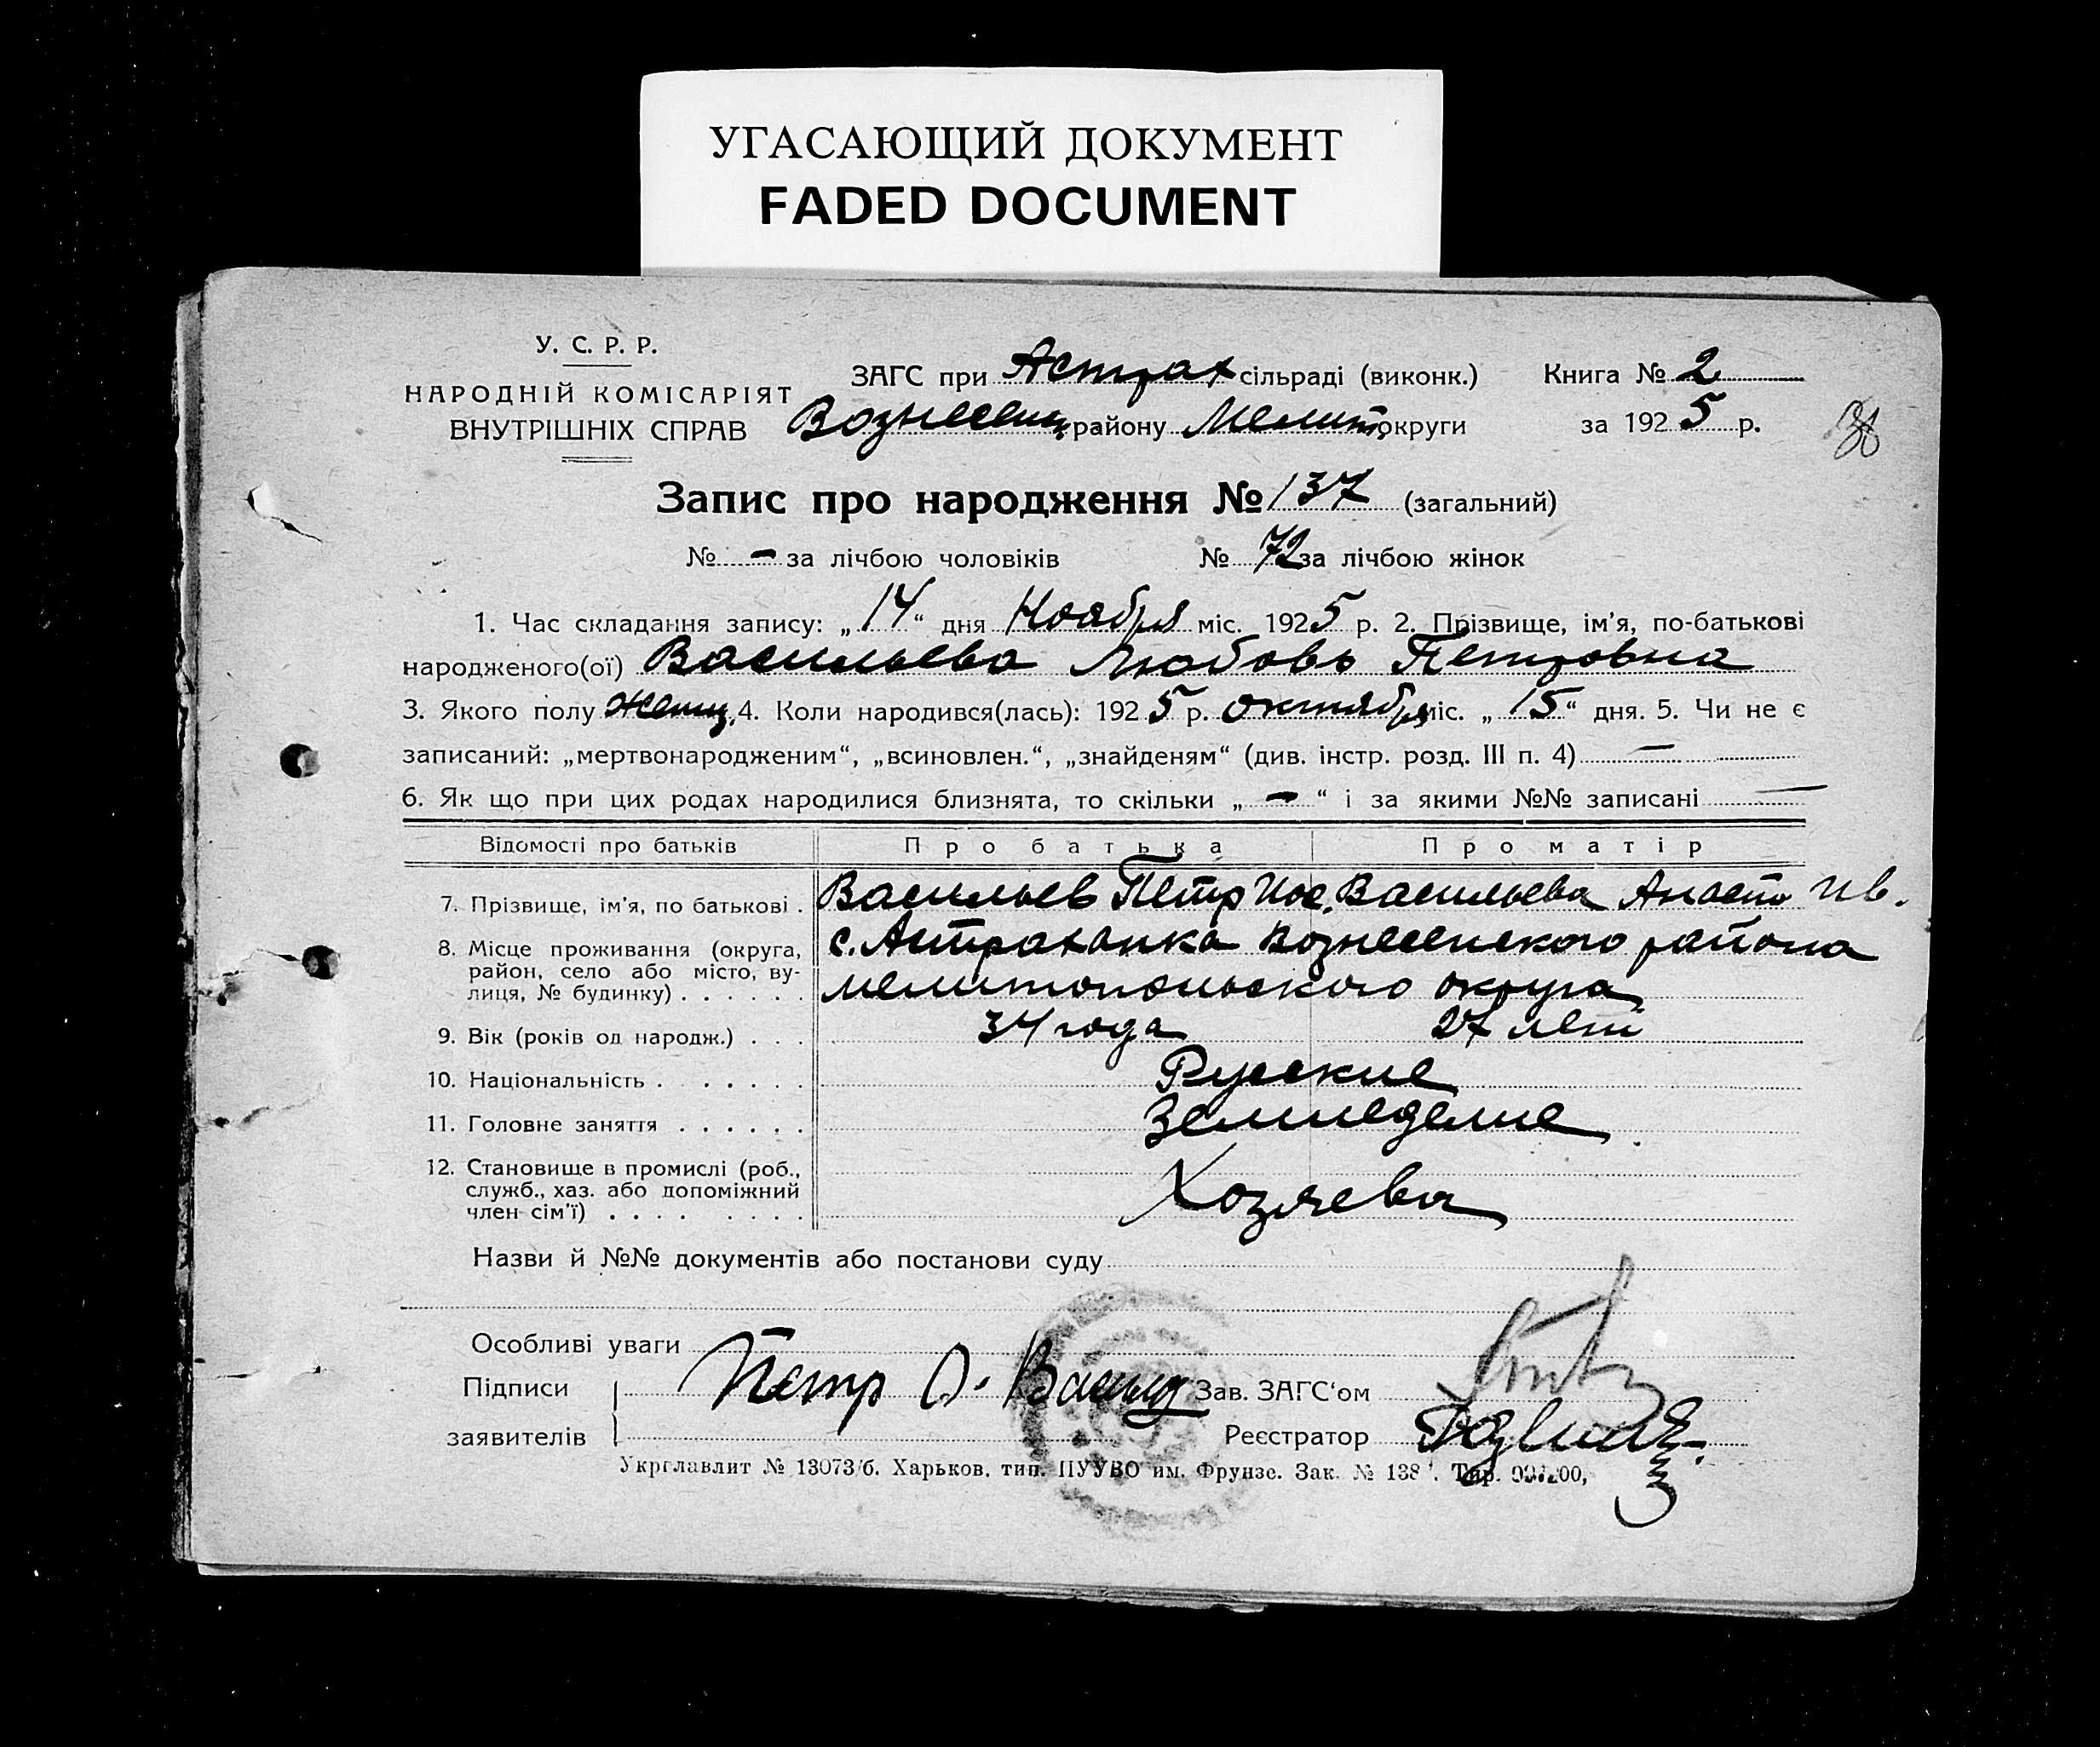 УГАСАЮЩИЙ ДОКУМЕНТ
FADED DOCUMENT
У. С. Р. Р.
НАРОДНІЙ КОМІСАРІЯТ
ВНУТРІШНІХ СПРАВ
ЗАГС при Астрах сільраді (виконк.) Книга № 2
Вознесенц району Мелит. округи за 1925 р.
Запис про народження № 137 (загальний)
№ — за лічбою чоловіків № 72 за лічбою жінок
1. Час складання запису: „14“ дня Ноября міс. 1925 р. 2. Прізвище, ім'я, по-батькові
народженого(ої) Васильева Любовь Петровна
3. Якого полу женщ. 4. Коли народився(лась): 1925 р. октября міс. „15“ дня. 5. Чи не є
записаний: „мертвонародженим“, „всиновлен.“, „знайденям“ (див. інстр. розд. III п. 4) —
6. Як що при цих родах народилися близнята, то скільки „—“ і за якими №№ записані —
Відомості про батьків Про батька Про матір
7. Прізвище, ім'я, по батькові . Васильев Петр Иос. Васильева Анаст Ив.
8. Місце проживання (округа, с. Астраханка Вознесенского района
район, село або місто, ву-
лиця, № будинку) . . . . . . мелитопольского округа
9. Вік (років од народж.) . . . 34 года 27 лет
10. Національність . . . . . . Русские
11. Головне заняття . . . . . . Земледелие
12. Становище в промислі (роб.,
служб., хаз. або допоміжний Хозяева
член сім'ї) . . . . . . . .
Назви й №№ документів або постанови суду
Особливі уваги
Підписи Петр О. Зав. ЗАГС‘ом
заявителів Реєстратор
Укрглавлит № 13073/б. Харьков, тип. ПУУВО им. Фрунзе. Зак. № 138 Тир.